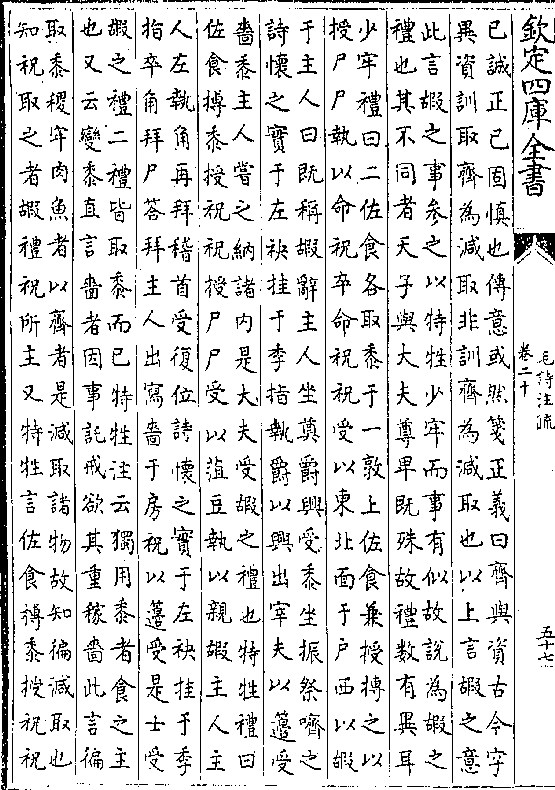 欽定四庫全書
毛詩注疏
卷二十
五十七
已誠正已固慎也傳意或然箋正義曰齊與資古今字
異資訓取齊為減取非訓齊為減取也以上言嘏之意
此言嘏之事參之以特牲少牢而事有似故說為嘏之
禮也其不同者天子與大夫尊卑既殊故禮數有異耳
少牢禮曰二佐食各取黍于一敦上佐食兼授摶之以
授尸尸執以命祝卒命祝祝受以東北面于戶西以嘏
于主人曰既稱嘏辭主人坐奠爵興受黍坐振祭嚌之
詩懷之實于左袂挂于季指執爵以興出宰夫以籩受
嗇黍主人嘗之納諸内是大夫受嘏之禮也特牲禮曰
佐食摶黍授祝祝授尸尸受以菹豆執以親嘏主人主
人左執角再拜稽首受復位詩懷之實于左袂挂于季
指卒角拜尸答拜主人出寫嗇于房祝以籩受是士受
嘏之禮二禮皆取黍而已特牲注云獨用黍者食之主
也又云變黍直言嗇者因事託戒欲其重稼嗇此言徧
取黍稷牢肉魚者以齊者是減取諸物故知徧減取也
知祝取之者嘏禮祝所主又特牲言佐食摶黍授祝祝